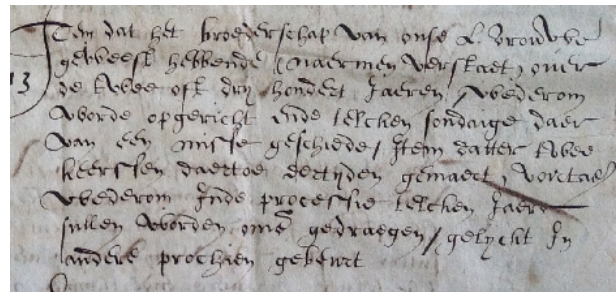 Item dat het broederschap van onse L. vrouwe
geweest hebbende (naermen verstaet) over
13 de twee oft dry hondert Jaeren, wederom
worde opgericht ende telcken sondaige daer
van een misse geschiede / Item datter twee
keerssen daertoe dertyden gemaect,
wederom Inde processie telcken Jaere
sullen worden omme gedraegen / gelyckt In
andere prochien gebeurt